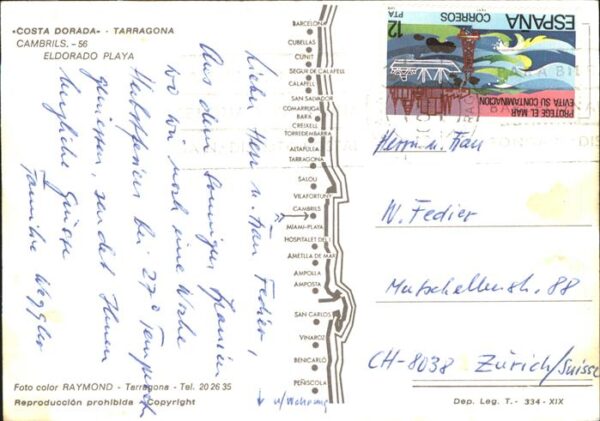 «COSTA DORADA» - TARRAGONA
CAMBRILS. - 56
ELDORADO PLAYA
Lieber Herr u. Frau Fedier,
Aus dem sonnigen Spanien
wo wir noch eine Woche
Herbstferien bei 27° Temperatur
geniessen, sendet Ihnen
herzliche Grüsse
Familie
BARCELONA
CUBELLAS
CUNIT
SEGUR DE CALAFELL
CALAFELL
SAN SALVADOR
COMARRUGA
BARA
CREIXELL
TORREDEMBARRA
ALTAFULLA
TARRAGONA
SALOU
VILAFORTUNY
CAMBRILS
MIAMI-PLAYA
HOSPITALET DEL I.
AMETLLA DE MAR
AMPOLLA
AMPOSTA
SAN CARLOS
VINAROZ
BENICARLO
PEÑISCOLA
ESPAÑA
CORREOS
12
PTA
PROTEGE EL MAR
EVITA SU CONTAMINACION
Herrn u. Frau
W. Fedier
Mutschellenstr. 88
CH-8038 Zürich/Suisse
Foto color RAYMOND - Tarragona - Tel. 20 26 35
Reproducción prohibida - Copyright
Dep. Leg. T. - 334 - XIX